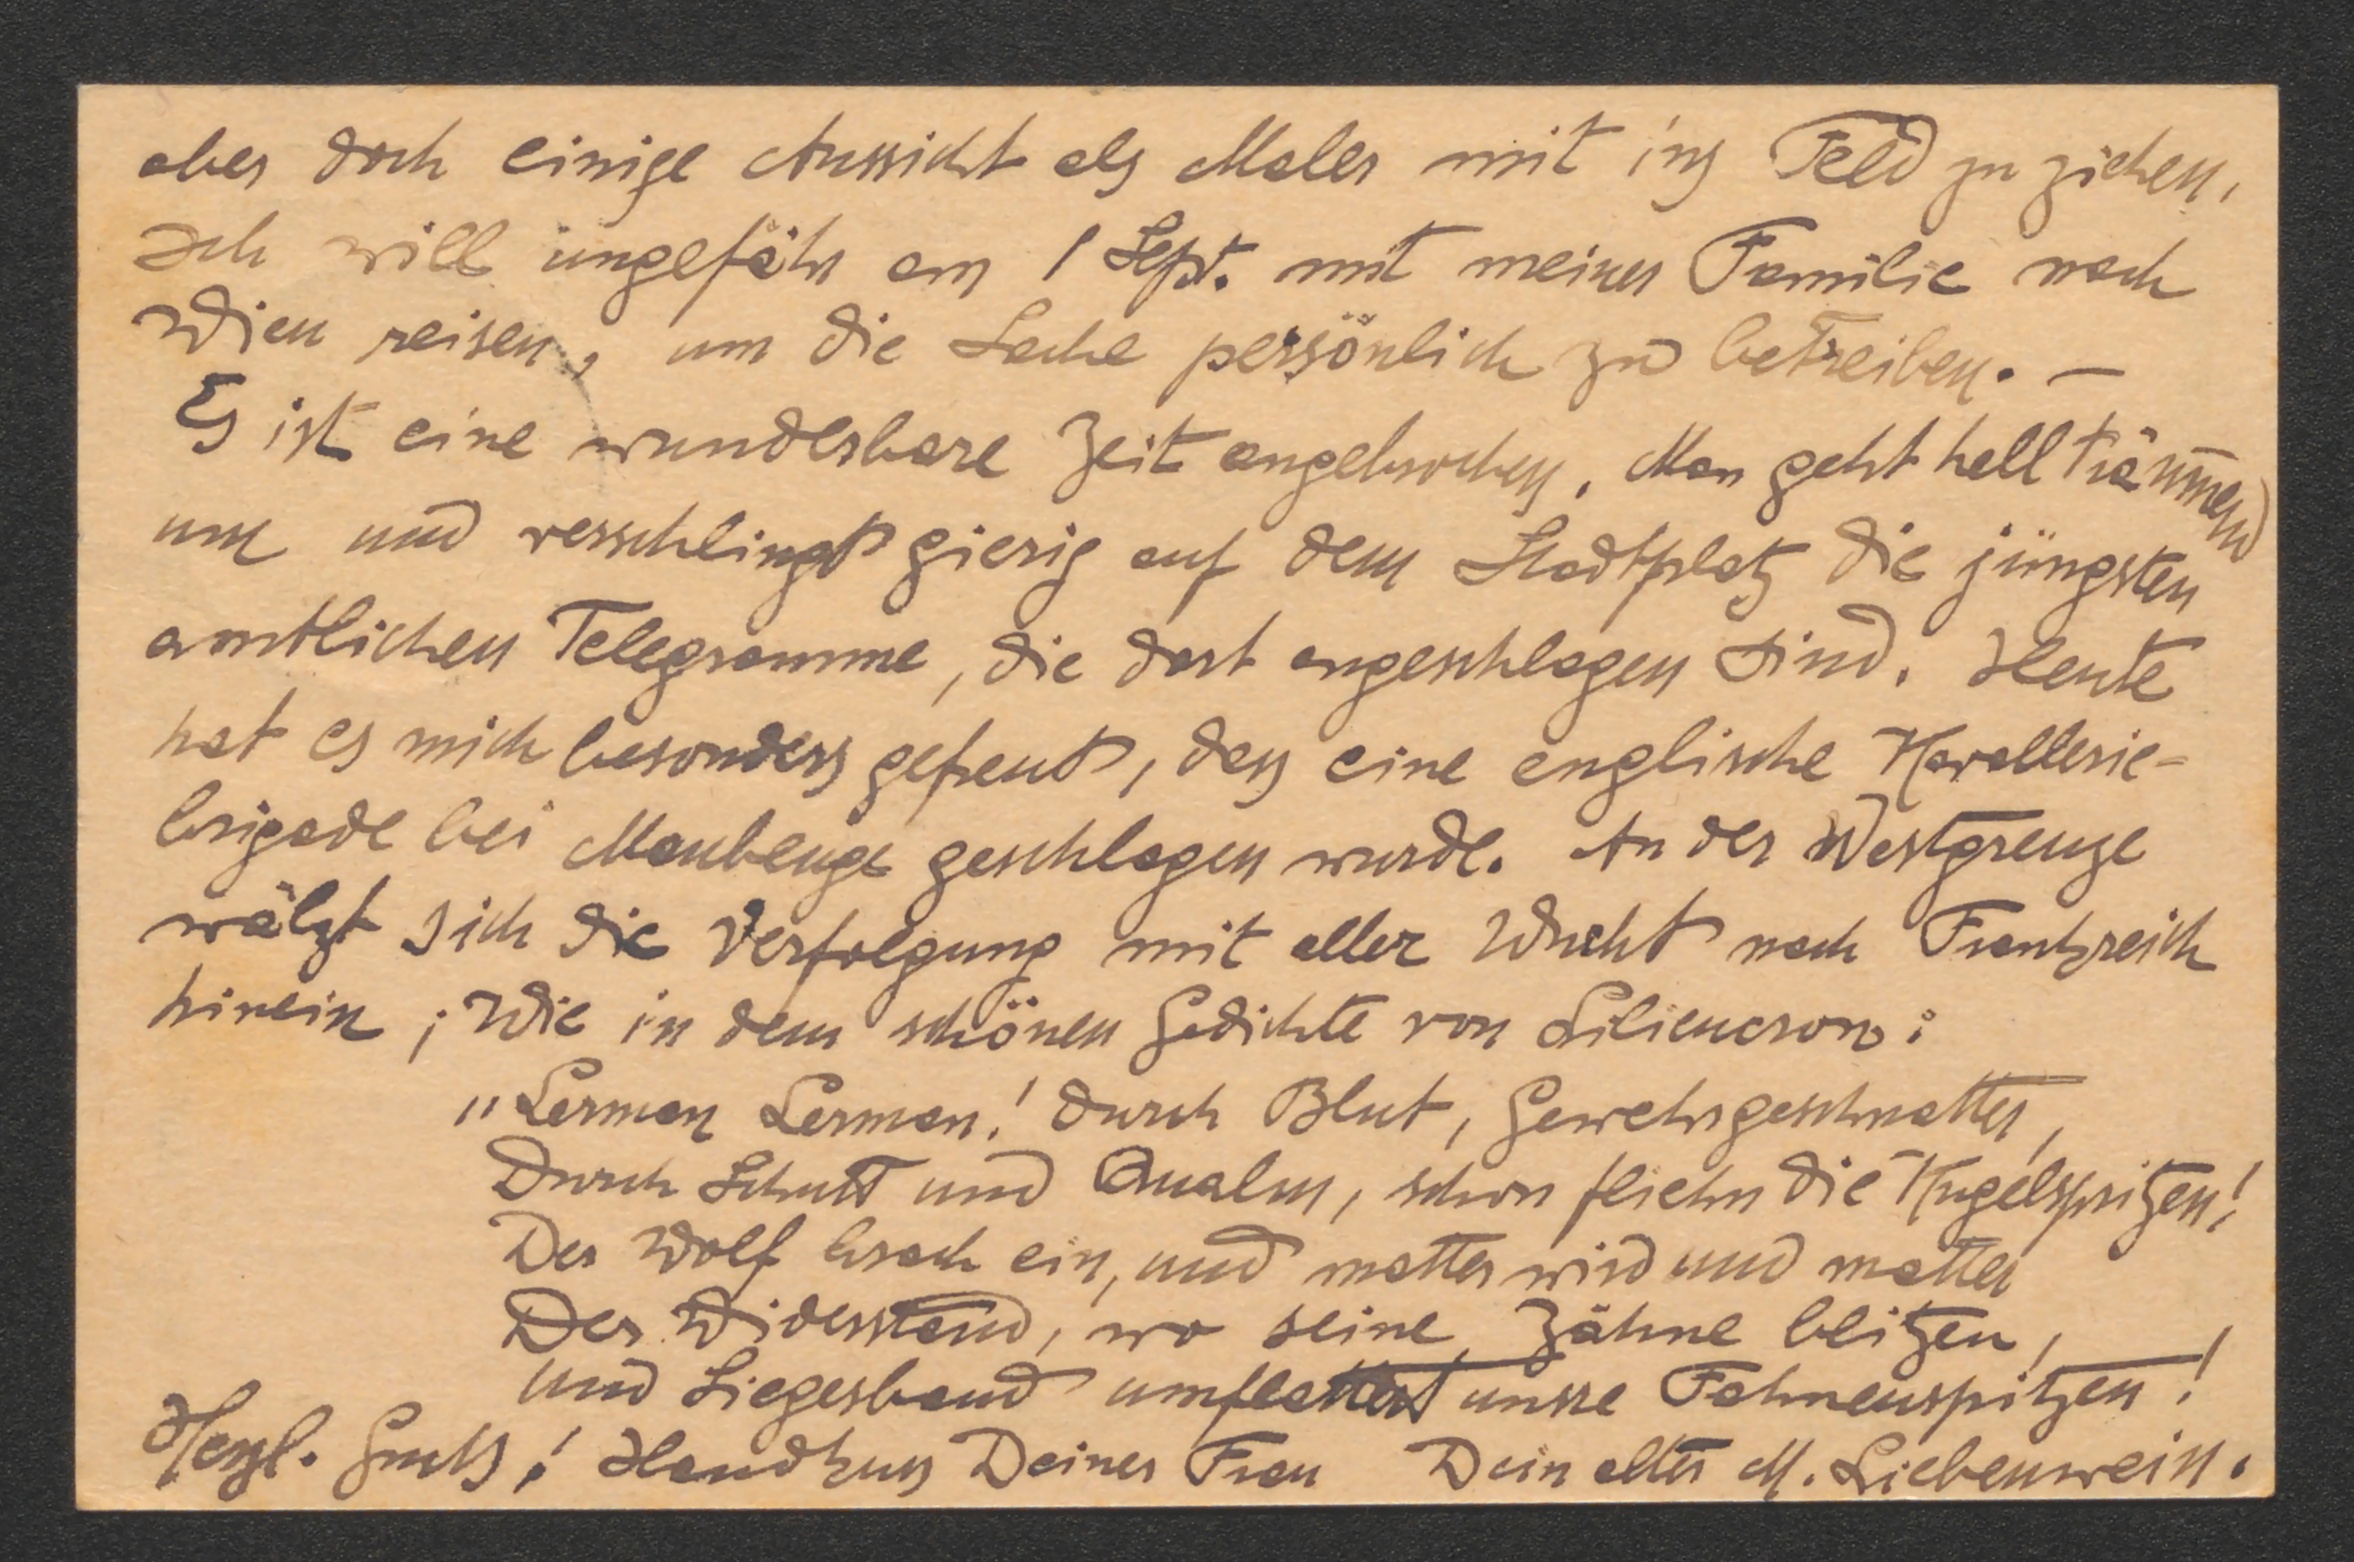 aber doch einige Aussicht als Maler mit ins Feld zu ziehen,
Ich will ungefähr am 1 Sept. mit meiner Familie nach
Wien reisen, um die Sache persönlich zu betreiben. —
Es ist eine wunderbare Zeit angebrochen. Man geht hell träumend
um und verschlingt gierig auf dem Stadtplatz die jüngsten
amtlichen Telegramme, die dort angeschlagen sind. Heute
hat es mich besonders gefreut, dass eine englische Kavallerie-
brigade bei Maubeuge geschlagen wurde. An der Westgrenze
wälzt sich die Verfolgung mit aller Wucht nach Frankreich
hinein; Wie in dem schönen Gedichte von Liliencron:
„Lerman Lerman! durch Blut, Gewehrgeschnatter,
Durch Schutt und Qualm, schon fliehn die Kugelspritzen!
Der Wolf brach ein, und matter wird und matter
Der Widerstand, wo seine Zähne blitzen,
und Siegesband umflattert unsre Fahnenspitzen!
Herzl. Gruß! Handkuss Deiner Frau Dein alter M. Liebenwein.